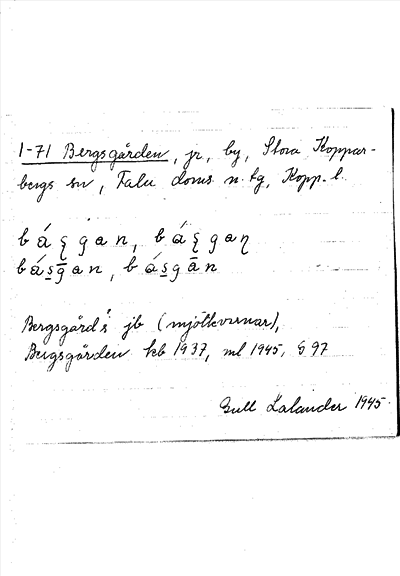 1-71 Bergsgården, jr, by, Stora Koppar-
bergs sn, Falu doms n. tg, Kopp. l.
bá̄ȿgan, báȿgaɳ
básḡan, básgān
Bergsgård's jb (mjölkvarnar),
Bergsgården kb 1937, ml 1945, § 97
Gull Lalander 1945.